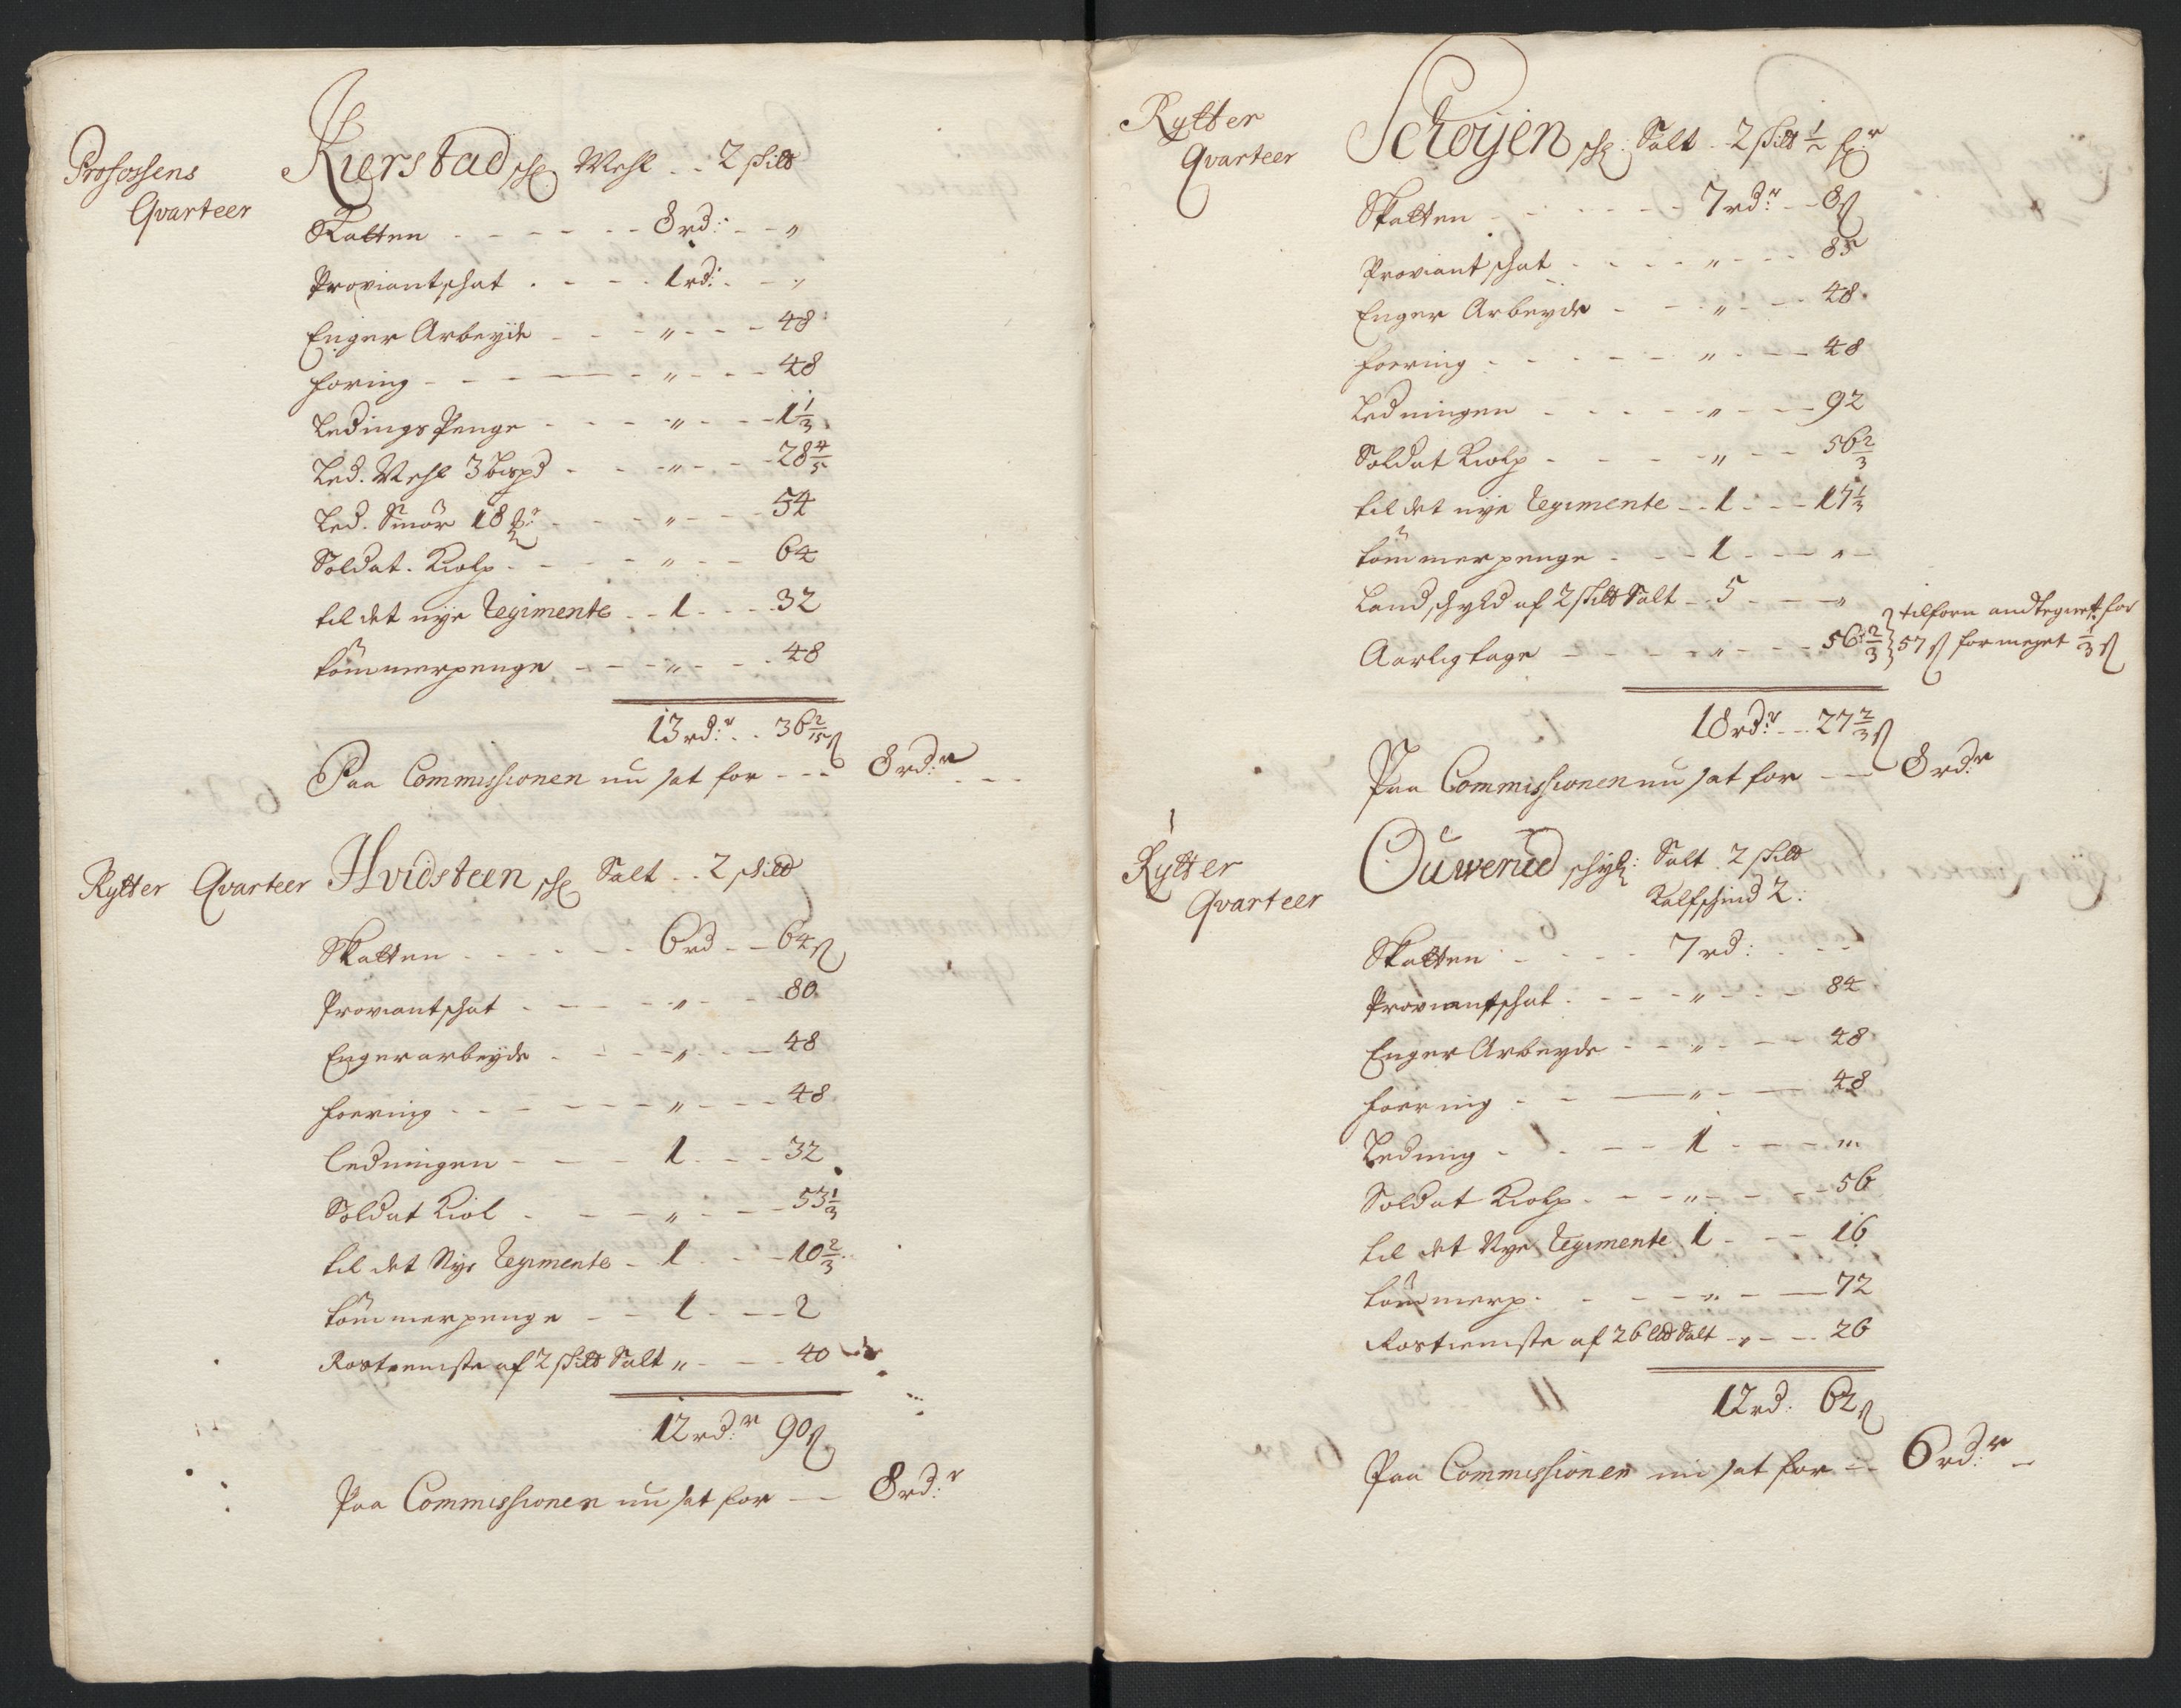 Profossens
Qvarteer
Kierstad sk: Mehl .. 2 skild
Skatten - - - - - - 8 rd: - - "
Proviantschat . - - - 1 rd: - - "
Enger Arbeyde - - - " - - - 48
Foring - - - - - " - - - 48
Ledings Penge - - - " - - - 1 1/3
Led. Mehl 3 bispd - - - " - - - 28 4/5
Led. Smör 18 - - - " - - - 54
Soldat. Kiolp - - - " - - - 64
til det nye Regimente - - 1 - - - 32
tömmerpenge - - - " - - - 48
13 rd:r .. 36 2/15 s
Paa Commissionen nu sat for - - - 8 rd:r - - -
Rytter Qvarteer
Hvidsteen sk: Salt .. 2 skild
Skatten - - - - - 6 rd - - 64 s
Proviantschat - - - - " - - 80
Engerarbeyde - - - " - - - 48
foering - - - - - " - - - 48
Ledningen - - - - 1 - - - 32
Soldat Kiol - - - " - - - 53 1/3
til det Nye Regimente - 1 - - - 10 2/3
tömmerpenge - - 1 - - - 2
Rostieniste af 2 skild Salt " - - - 40
12 rd:r 90 s
Paa Commissionen nu sat for - - 8 rd:r
Rytter
Qvarteer
Schøyen sk: Salt - 2 skild 1/2 f:r
Skatten - - - - - - 7 rd:r - - 8 s
Proviant schat - - - - " - - - 85
Enger Arbeyde - - - " - - - 48
foering - - - - - " - - - 48
Ledningen - - - - - " - - - 92
Soldat Kiolp - - - - " - - - 56 2/3
til det nye Regimente - - 1 - - - 17 1/3
tömmerpenge - - - 1 - - - "
Landschyld af 2 skild Salt - 5 - - - "
Aarlig tage - - - - " - - - 56 2/3 } tilforn andtegnet for
57 s for meget 1/3 s
18 rd:r - - 27 2/3 s
Paa Commissionen nu sat for - - 8 rd:r
Rytter
Qvarteer
Ouwerud schyl: Salt . 2 skild
Kalfschind 2:
Skatten - - - - 7 rd: - - -
Proviantschat - - - - " - - - 84
Enger Arbeyde - - - " - - - 48
foering - - - " - - - 48
Ledning - - - - 1 - - - "
Soldat Kiolp - - - " - - - 56
til det Nye Regimente 1 - - - 16
tömmerp - - - - " - - - 72
Rostieniste af 26 Salt - " - - - 26
12 rd: 62 s
Paa Commissionen nu sat for - - 6 rd:r -